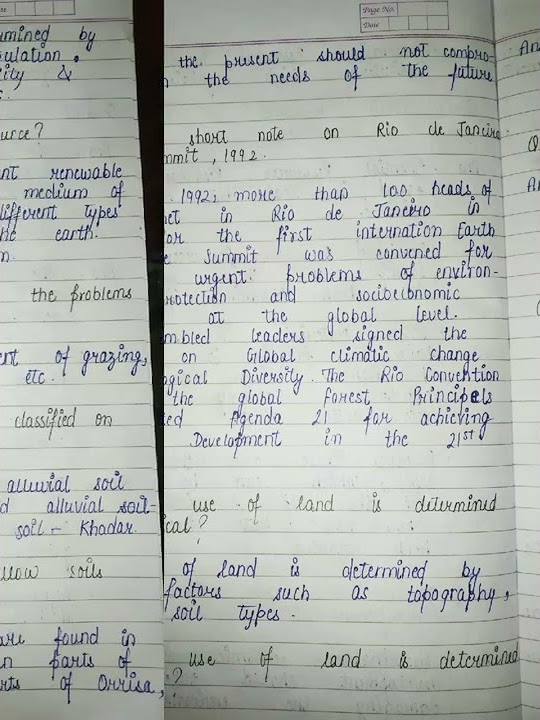 umined by
pulation.
city &
urce?
nt renewable
medium of
different types
he earth.
n.
the problems
ent of grazing,
etc.
classified on
alluvial soil
d alluvial soil-
soil - Khadar.
llow soils
are found in
n parts of
rts of Orrisa,
Page No.
Date
the present should not compro-
n the needs of the future
short note on Rio de Janeiro
mmit, 1992.
1992, more than 100 heads of
et in Rio de Janeiro in
or the first internation Earth
e Summit was convened for
urgent problems of environ-
rotection and socioeconomic
at the global level.
mbled leaders signed the
on Global climatic change
ogical Diversity. The Rio Convention
the global Forest Principals
ted Agenda 21 for achieving
Development in the 21st
use of land is determined
ical?
of land is determined by
factors such as topography,
soil types.
use of land is determined
?
An
Q
An